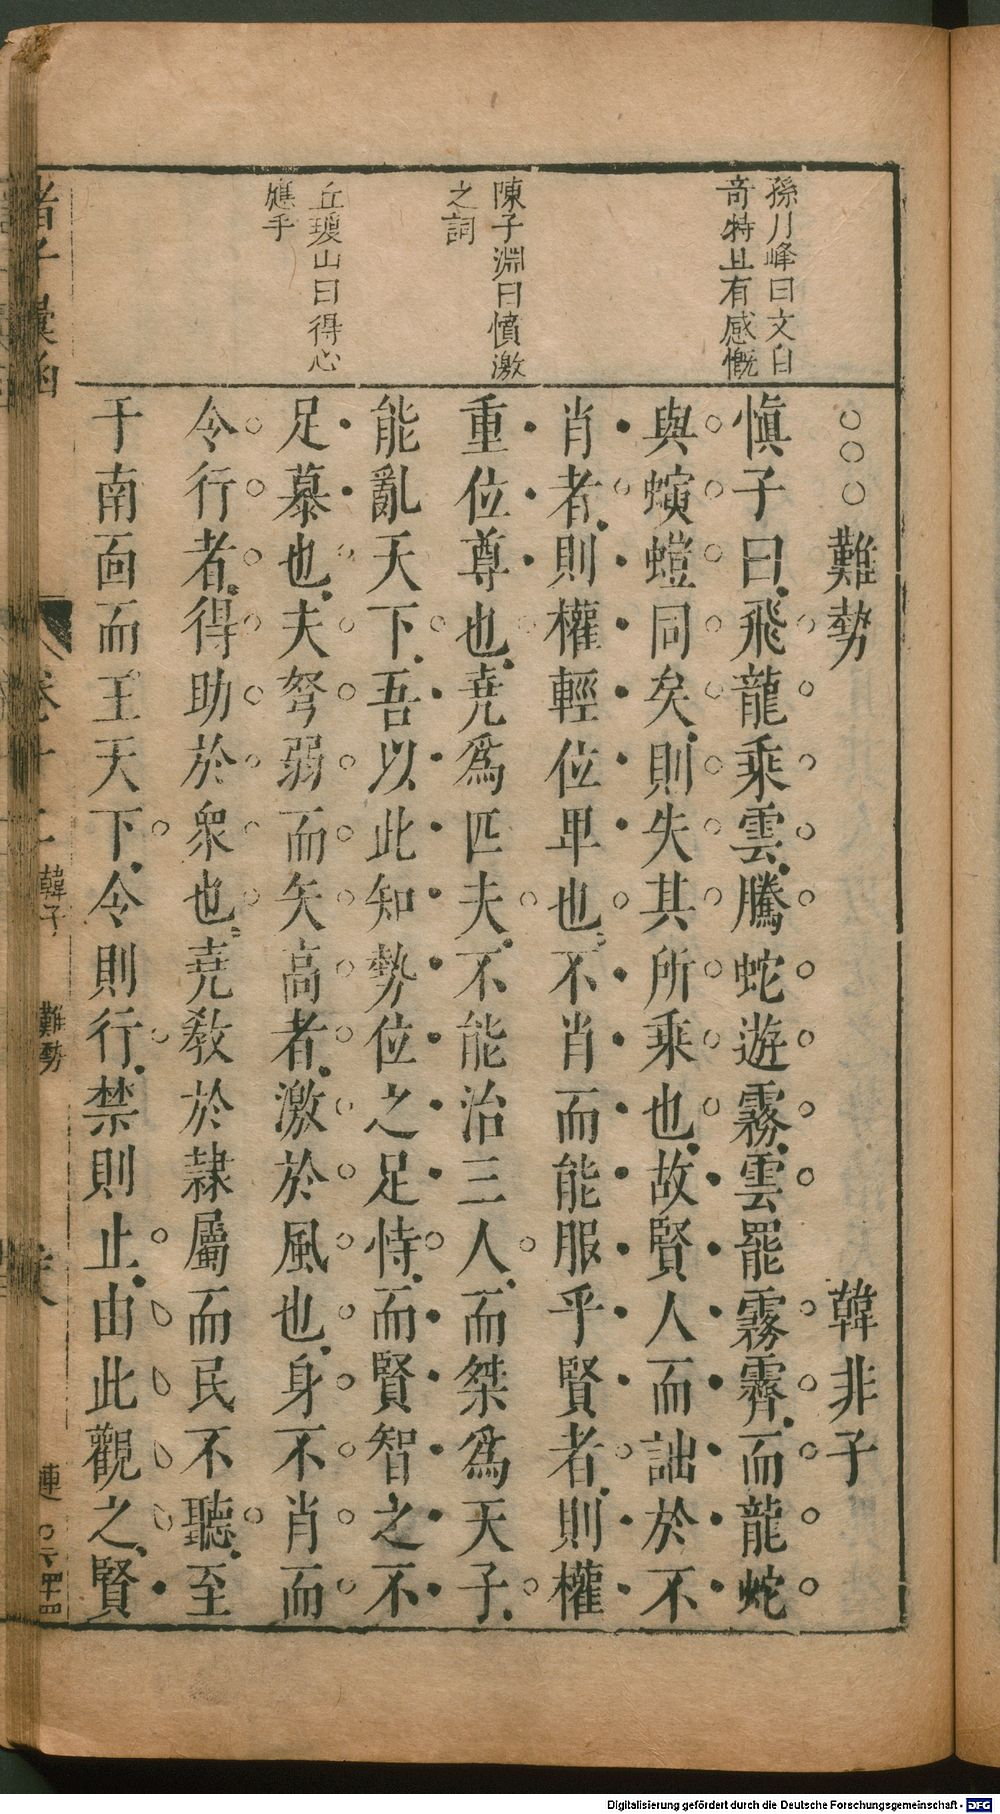 孫月峰曰文自
奇特且有感慨
陳子淵曰憤激
之詞
丘瓊山曰得心
應手
○○○難勢 韓非子
慎子曰飛龍乘雲騰蛇遊霧雲罷霧霽而龍蛇
與螾螘同矣則失其所乘也故賢人而詘於不
肖者則權輕位卑也不肖而能服乎賢者則權
重位尊也堯爲匹夫不能治三人而桀爲天子
能亂天下吾以此知勢位之足恃而賢智之不
足慕也夫弩弱而矢高者激於風也身不肖而
令行者得助於衆也堯敎於隷屬而民不聽至
于南面而王天下令則行禁則止由此觀之賢
諸子彙函
卷十二
韓子
難勢
Digitalisierung gefördert durch die Deutsche Forschungsgemeinschaft - DFG